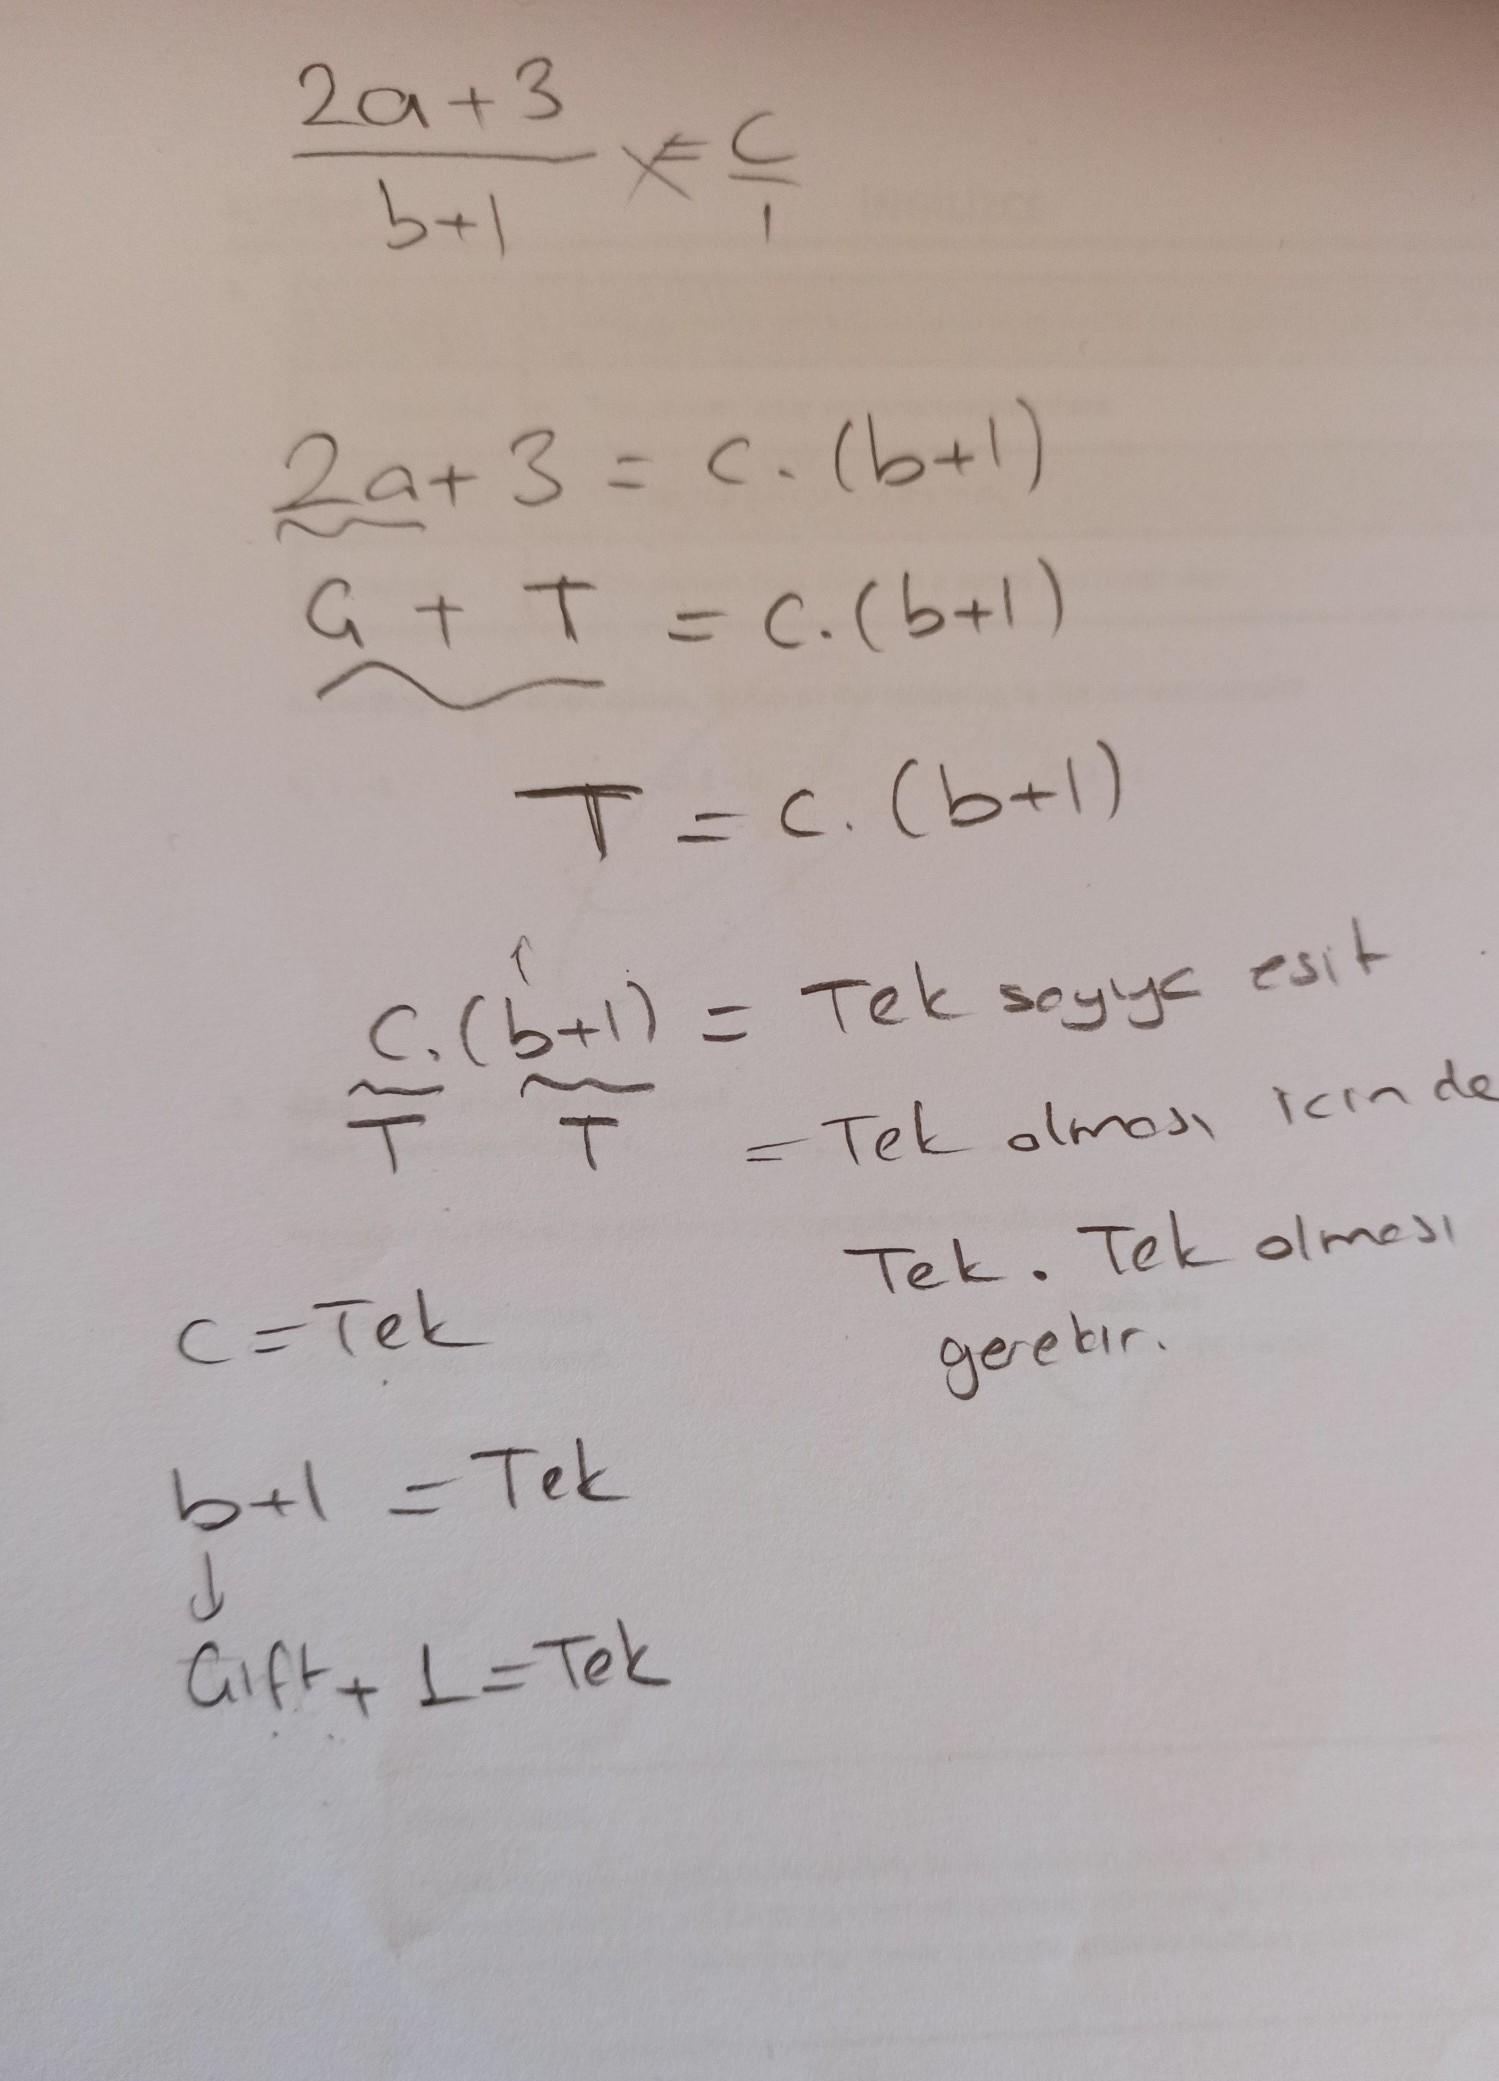 2a+3 / b+1 = c / 1
2a+3 = c.(b+1)
Ç + T = c.(b+1)
T = c.(b+1)
c.(b+1) = Tek sayıya esit
T T = Tek olması icin de
Tek . Tek olması
gerekir.
c = Tek
b+1 = Tek
↓
Çift + 1 = Tek